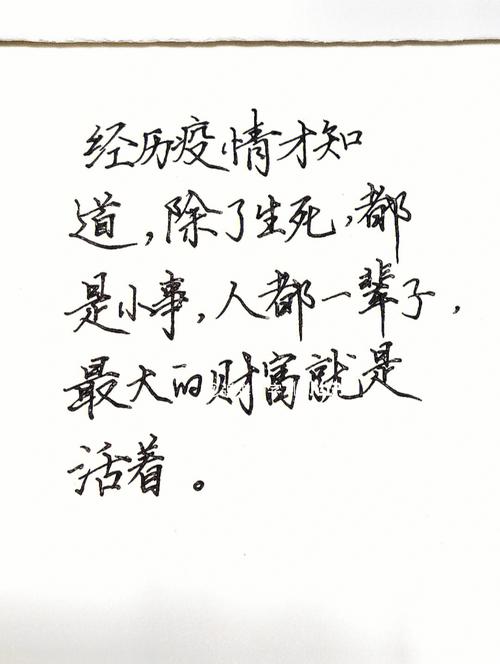 经历疫情才知
道,除了生死,都
是小事,人都一辈子,
最大的财富就是
活着。